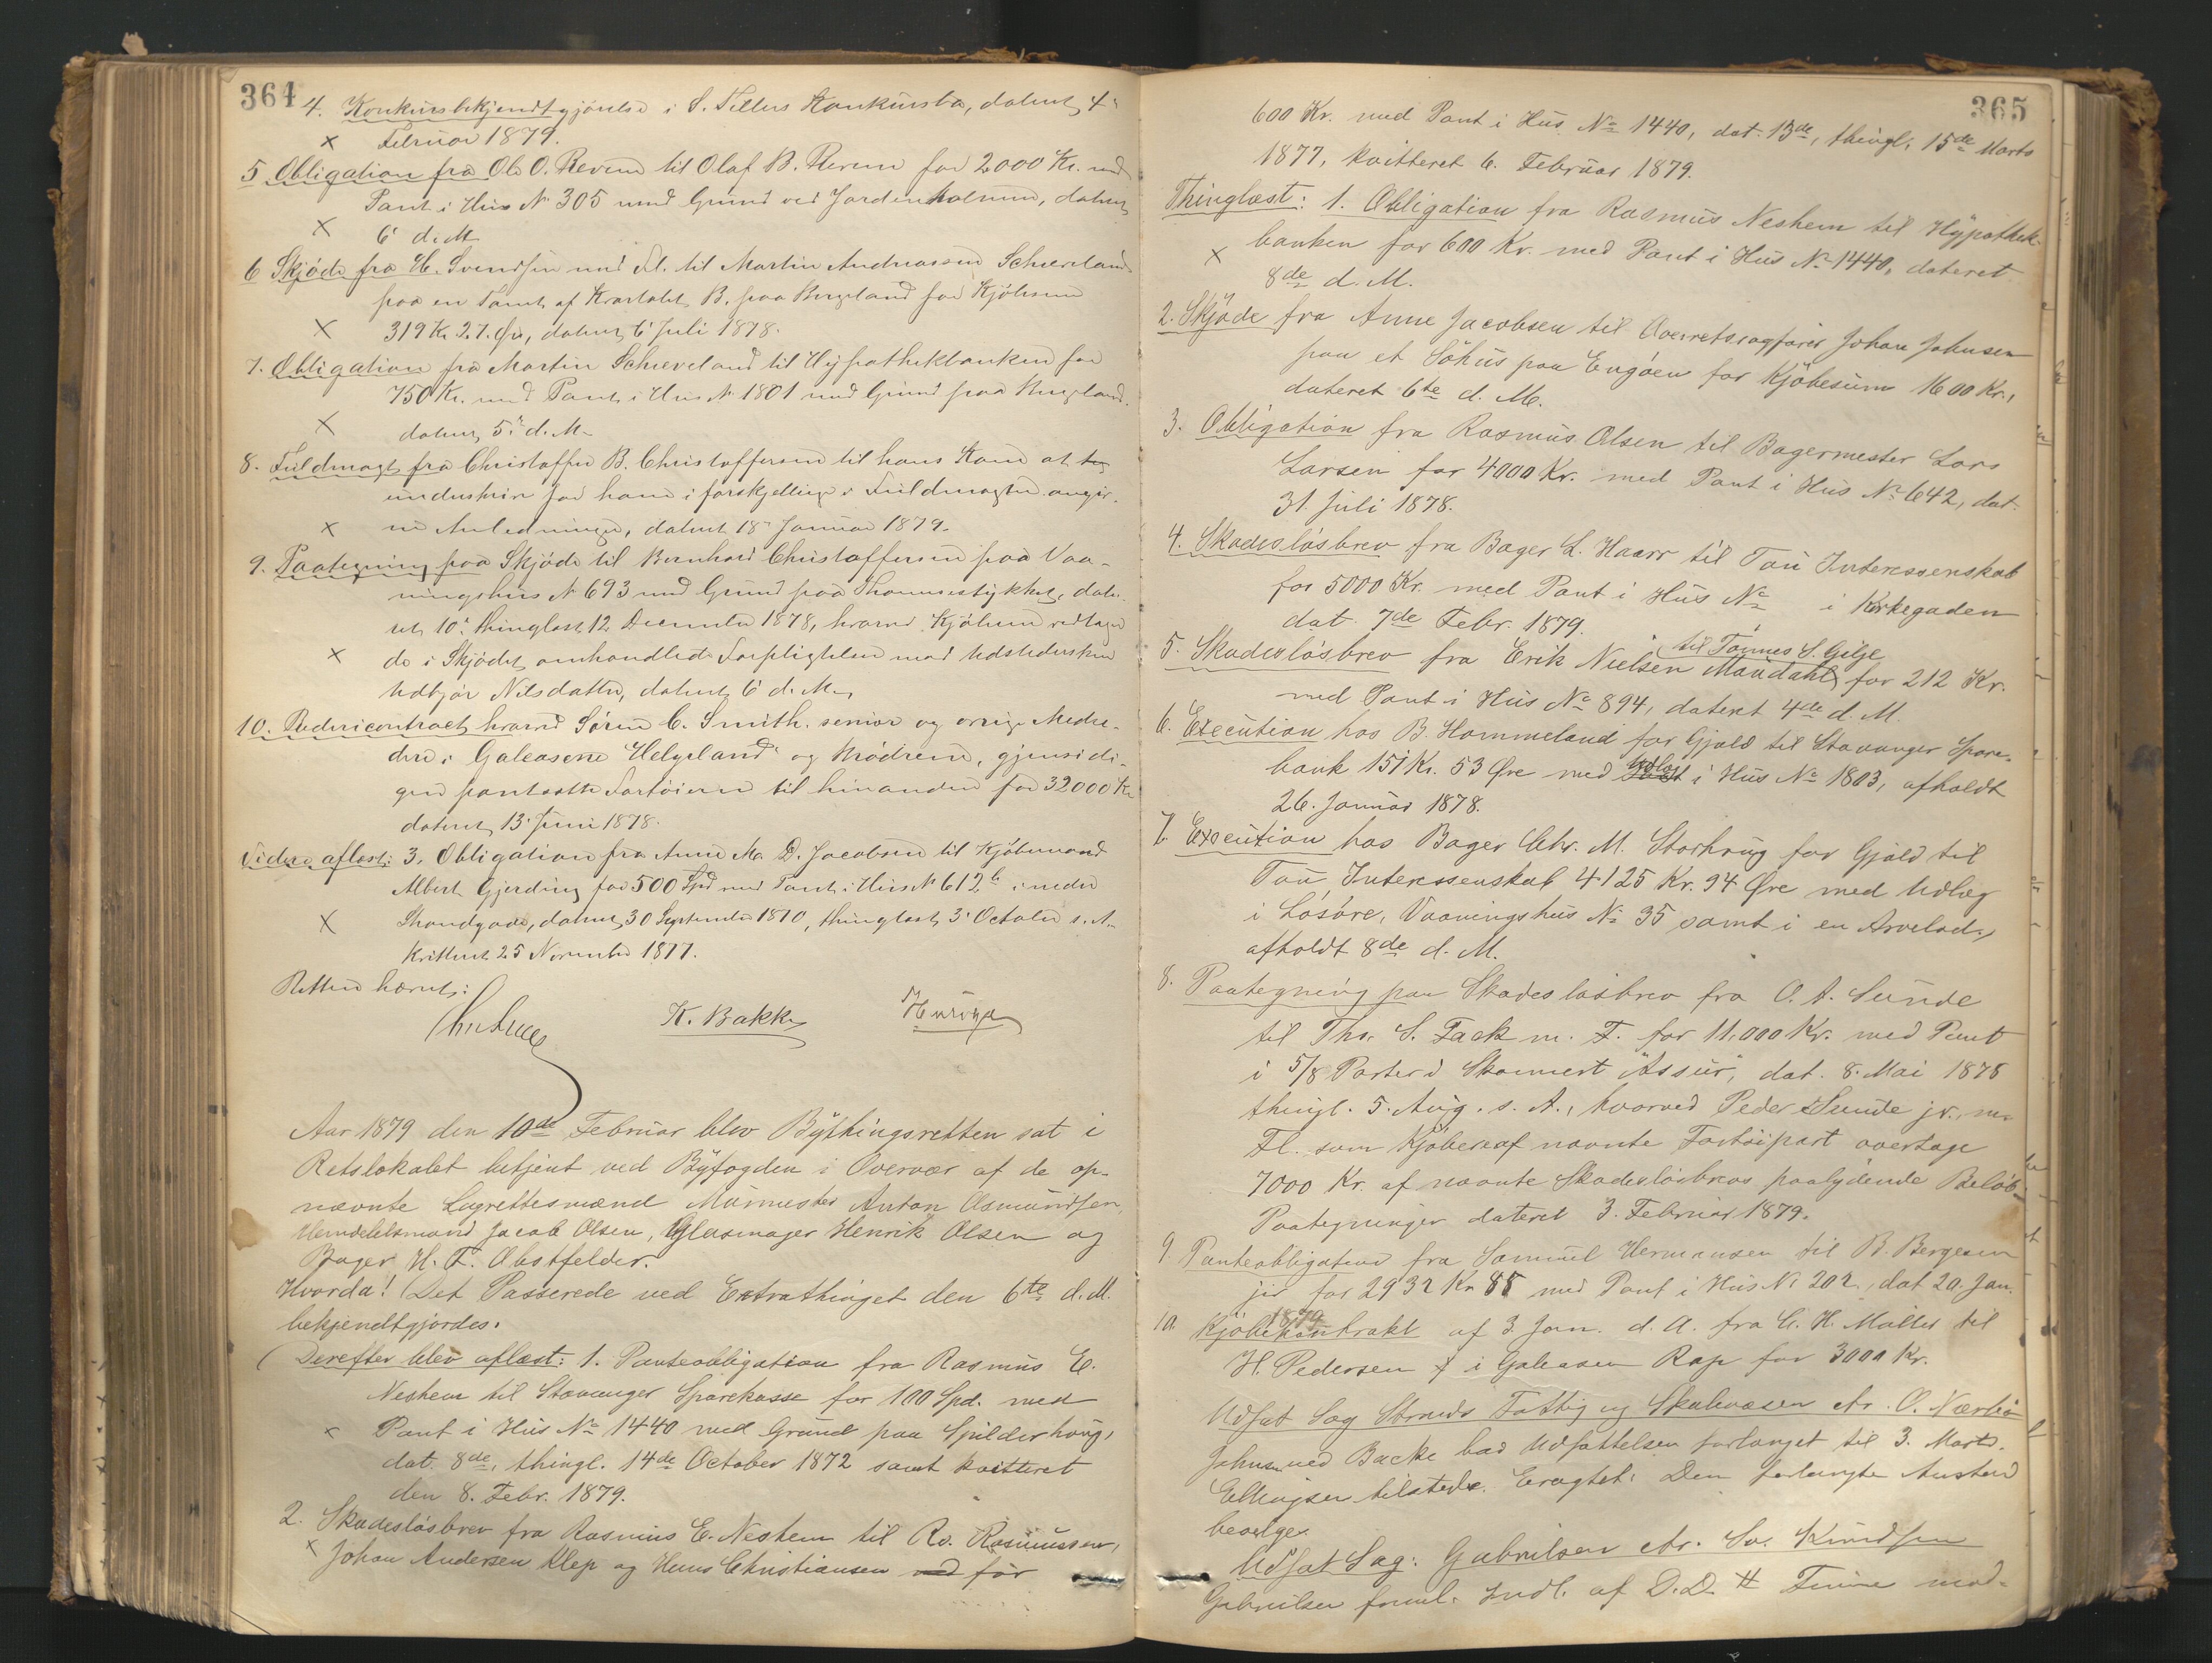 364
4. Konkursbekjendtgjörelse i S. Tellers Konkursbo, dateret 4
× Februar 1879.
5 Obligation fra Ole O. Revem til Olaf B. Revem for 2000 Kr. med
Pant i Hus No 305 med Grund ved Jorden, dateret
× 6 d. M.
6 Skjöde fra H. Svendsen med Fl. til Martin Andreassen Schieveland
paa en Tomt af Kvartalet B. paa Bergeland for Kjöbesum
× 319 Kr. 27. Øre, dateret 6 Juli 1878.
7. Obligation fra Martin Schieveland til Hypothekbanken for
750 Kr. med Pant i Hus No 1801 med Grund paa Bergeland.
× dateret 5 d. M.
8. Fuldmagt fra Christoffer B. Christoffersen til hans Kone at
underskrive for ham i forskjellige i Fuldmagten angiv-
× ne Anledninger, dateret 18 Januar 1879.
9. Paategning paa Skjöde til Bernhard Christoffersen paa Vaa-
ningshus No 693 med Grund paa Thomsestykket, date-
ret 10 thinglæst 12 December 1878, hvorved Kjöberen vedtager
× de i Skjödet omhandlede Forpligtelser mod Udstedersken
Udbjör Nilsdatter, dateret 6 d. M.
10. Redericontract hvorved Sören C. Smith senior og övrige Medre-
dere i Galeaserne Helgeland og Brödrene, gjensidi-
gen pantsætte Fartöierne til hinanden for 32000 Kr
dateret 13 Juni 1878.
Videre aflæst: 3. Obligation fra Anne M. D. Jacobsen til Kjöbmand
Albert Gjerding for 500 Spd med Pant i Hus No 612 b i nedre
× Strandgade, dateret 30 September 1870, thinglæst 3 October s. A.
Kvitteret 25 November 1877.
Retten hævet:
K. Bakke
Aar 1879 den 10de Februar blev Bythingsretten sat i
Retslokalet betjent ved Byfogden i Overvær af de op-
nævnte Lagrettesmænd Murmester Anton Asmundsen,
Handelsmand Jacob Olsen, Glasmager Henrik Olsen og
Bager H. F. Obstfelder.
Hvorda! Det Passerede ved Extrathinget den 6te d. M.
bekjendtgjordes.
Derefter blev aflæst: 1. Panteobligation fra Rasmus E.
Neshem til Stavanger Sparekasse for 100 Spd. med
× Pant i Hus No 1440 med Grund paa Spilderhoug,
dat. 8de, thingl. 14de October 1872 samt kvitteret
den 8. Febr. 1879.
2. Skadeslösbrev fra Rasmus E. Neshem til Rs. Rasmussen,
× Johan Andersen Klep og Hans Christiansen ved for
365
600 Kr. med Pant i Hus No 1440, dat. 13de, thingl. 15de Marts
1877, kvitteret 6. Februar 1879.
Thinglæst: 1. Obligation fra Rasmus Neshem til Hypothek-
× banken for 600 Kr. med Pant i Hus No 1440, dateret
8de d. M.
2. Skjöde fra Anne Jacobsen til Overretssagförer Johan Johnsen
paa et Söhus paa Engöen for Kjöbesum 1600 Kr.,
dateret 6te d. M.
3. Obligation fra Rasmus Olsen til Bagermester Lars
Larsen for 4000 Kr. med Pant i Hus No 642, dat.
31. Juli 1878.
4. Skadeslösbrev fra Bager L. Haarr til Tou Interessenskab
for 5000 Kr. med Pant i Hus No i Kirkegaden
dat. 7de Febr. 1879.
til Tönnes S. Gilje
5. Skadeslösbrev fra Erik Nielsen Maudahl for 212 Kr.
med Pant i Hus No 894, dateret 4de d. M.
6. Execution hos B. Hommeland for Gjæld til Stavanger Spare-
bank 151 Kr. 53 Øre med Udlæg i Hus No 1803, afholdt
26. Januar 1878.
7. Execution hos Bager Chr. M. Storhoug for Gjæld til
Tou Interessenskab 4125 Kr. 94 Øre med Udlæg
i Lösöre, Vaaningshus No 35 samt i en Arvelod,
afholdt 8de d. M.
8. Paategning paa Skadeslösbrev fra O. A. Sunde
til Ths. S. Fack m. F. for 11,000 Kr. med Pant
i 5/8 Parter i Skonnert "Assur", dat. 8. Mai 1878
thingl. 5. Aug. s. A., hvorved Peder Sunde jr. m.
Fl. som Kjöbere af nævnte Fartöipart overtage
7000 Kr. af nævnte Skadeslösbrevs paalydende Belöb.
Paategningen dateret 3. Februar 1879.
9 Panteobligation fra Samuel Hermansen til B. Bergesen
jr for 2932 Kr 85 med Pant i Hus No 202, dat 20. Jan.
1879
10. Kjöbekontrakt af 3 Jan. d. A. fra C. H. Möller til
H. Pedersen i Galeasen Rap for 3000 Kr.
Udsat Sag Strands Fattig og Skolevæsen ctr. O. Nærbö
Johnsen ved Backe bad Udsættelsen forlænget til 3. Marts.
Ellingsen tilstede. Eragtet: Den forlangte Anstand
bevilges.
Udsat Sag: Gabrielsen ctr. Sv. Knudsen
Gabrielsen freml. Indl. af D.D. H med-